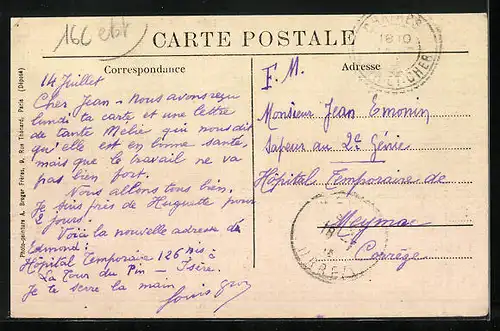 CARTE POSTALE
Correspondance
Adresse
14 Juillet
Cher Jean - Nous avons reçu
lundi ta carte et une lettre
de tante Mélie qui nous dit
qu'elle est en bonne santé,
mais que le travail ne va
pas bien fort.
Nous allons tous bien.
Je suis près de Huguette pour
2 jours.
Voici la nouvelle adresse de
Edmond:
Hôpital Temporaire 126 bis à
La Tour du Pin - Isère.
Je te serre la main
Louis
F. M.
Monsieur Jean Emonin
Sapeur au 2e Génie
Hôpital Temporaire de
Meymac
Corrège
18 10
CHER
Photo-peinture A. Breger Frères, 9, Rue Thénard, Paris (Déposé)